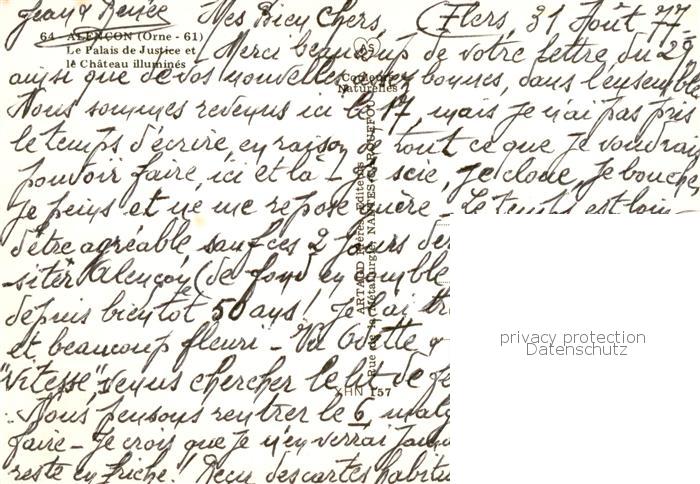 Jean & Renée Mes Bien Chers (Flers 31 Août 77
64 - ALENÇON (Orne - 61)
Le Palais de Justice et
le Château illuminés
AS
Couleurs
Naturelles
ARTAUD Frères, Editeurs
Rue de la Métallurgie, NANTES-CARQUEFOU
XHN 157
Merci beaucoup de votre lettre du 29
ainsi que de vos nouvelles, bonnes, dans l'ensemble
Nous sommes revenus ici le 17, mais je n'ai pas pris
le temps d'écrire, en raison de tout ce que je voudrais
pouvoir faire, ici et là - Je scie, je cloue, je bouche,
je peins et ne me repose guère - Le temps est loin
d'être agréable sauf ces 2 jours
siter Alençon (de fond en comble
depuis bientôt 50 ans! Je l'ai
et beaucoup fleuri - Vu Odette &
"Vitesse" venus chercher le lit de
Nous pensons rentrer le 6,
faire - Je crois que je n'en verrai
reste en friche! Reçu des cartes
privacy protection
Datenschutz